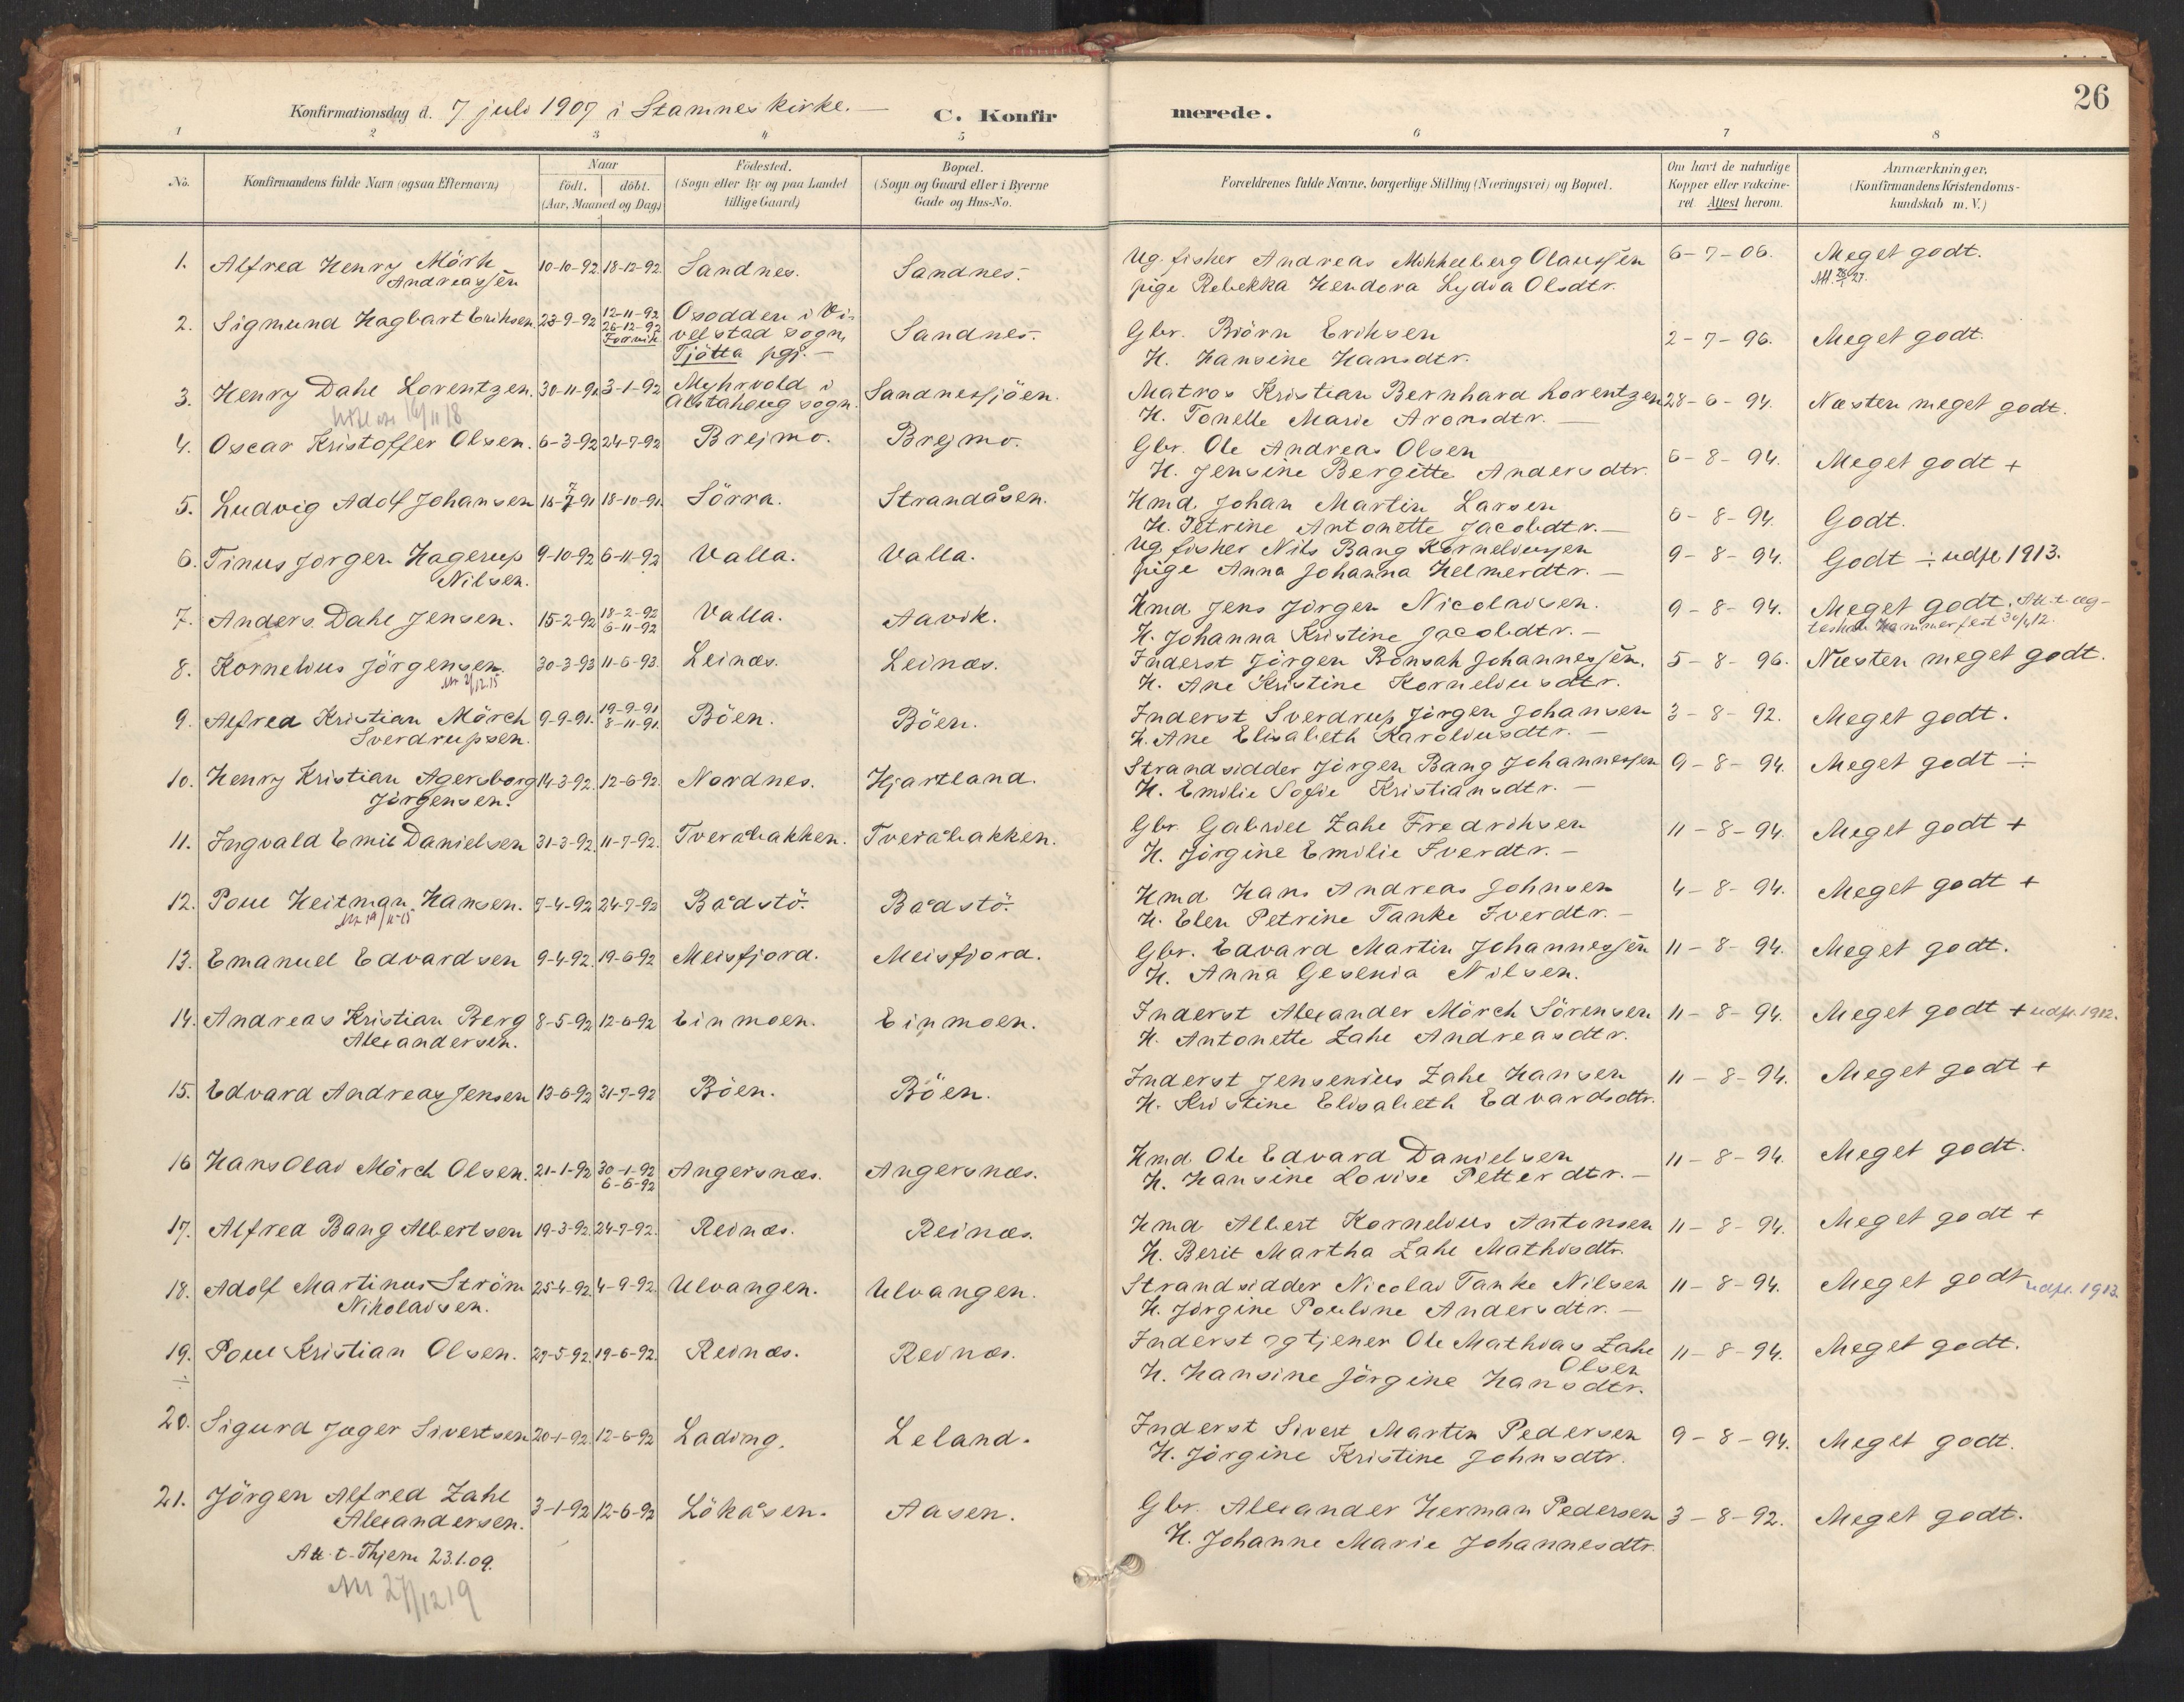 26
Konfirmationsdag d. 7 juli 1907 i Stamnes kirke. — C. Konfirmerede.
1 2 3 4 5 6 7 8
No. Konfirmandens fulde Navn (ogsaa Efternavn) Naar födt. döbt. (Aar, Maaned og Dag) Födested. (Sogn eller By og paa Landet tillige Gaard) Bopæl. (Sogn og Gaard eller i Byerne Gade og Hus-No. Forældrenes fulde Navne, borgerlige Stilling (Næringsvei) og Bopæl. Om havt de naturlige Kopper eller vakcineret Attest herom. Anmærkninger, (Konfirmandens Kristendomskundskab m. V.)
1. Alfred Henry Mörk Andreassen 10-10-92 18-12-92 Sandnes. Sandnes. Ug. fisker Andreas Mikkelberg Olaussen 6-7-06. Meget godt.
pige Rebekka Hendora Lydia Olsdtr.
2. Sigmund Hagbart Eriksen 23-9-92 12-11-92 26-12-92 Forvik Osodden i Vivelstad sogn, Tjötta pgj. — Sandnes. Gbr. Björn Eriksen 2-7-96. Meget godt.
H. Hansine Hansdtr.
3. Henry Dahl Lorentzen. 30-11-91 3-1-92 Myhrvold i Alstahoug sogn. Sandnessjöen. Matros Kristian Bernhard Lorentzen 28-6-94. Næsten meget godt.
H. Tonelle Marie Aronsdtr. —
4. Oscar Kristoffer Olsen. 6-3-92 24-7-92 Brejmo. Brejmo. Gbr. Ole Andreas Olsen 6-8-94. Meget godt +
H. Jensine Bergitte Andersdtr.
5. Ludvig Adolf Johansen 16-7-91 18-10-91. Sörra. Strandåsen. Hmd. Johan Martin Larsen 6-8-94. Godt.
H. Petrine Antonette Jacobdtr. —
6. Tinus Jörgen Hagerup Nilsen. 9-10-92 6-11-92 Valla. Valla. Ug. fisker Nils Bang Korneliussen 9-8-94. Godt ÷ udfl. 1913.
pige Anna Johanna Helmerdtr. —
7. Anders Dahl Jensen. 15-2-92 18-2-92 6-11-92 Valla. Aavik. Hmd. Jens Jörgen Nicolaisen. 9-8-94. Meget godt. Att. t. ægteskab Hammerfest 30/4 12.
H. Johanna Kristine Jacobdtr. —
8. Kornelius Jörgensen. 30-3-93 11-6-93. Leinæs. Leinæs. Inderst Jörgen Bonsak Johannessen. 5-8-96. Næsten meget godt.
H. Ane Kristine Korneliusdtr.
9. Alfred Kristian Mörch Sverdrupsen. 9-9-91. 19-9-91 8-11-91. Böen. Böen. Inderst Sverdrup Jörgen Johansen 3-8-92. Meget godt.
H. Ane Elisabeth Karoliusdtr. —
10. Henry Kristian Agersborg Jörgensen. 14-3-92. 12-6-92. Nordnes. Hjartland. Strandsidder Jörgen Bang Johannessen 9-8-94. Meget godt ÷
H. Emilie Sofie Kristiansdtr. —
11. Ingvald Emil Danielsen 31-3-92. 11-7-92. Tveråbakken. Tveråbakken. Gbr. Gabriel Zahl Fredriksen 11-8-94. Meget godt +
H. Jörgine Emilie Iverdtr. —
12. Poul Heitman Hansen. 7-4-92 24-7-92 Bådstö. Bådstö. Hmd. Hans Andreas Johnsen 4-8-94. Meget godt +
H. Elen Petrine Tanke Iverdtr. —
13. Emanuel Edvardsen 9-4-92. 19-6-92 Meisfjord. Meisfjord. Gbr. Edvard Martin Johannessen 11-8-94. Meget godt.
H. Anna Gesenia Nilsen.
14. Andreas Kristian Berg Alexandersen. 8-5-92 12-6-92 Einmoen. Einmoen. Inderst Alexander Mörch Sörensen 11-8-94. Meget godt + udfl. 1912.
H. Antonette Zahl Andreasdtr.
15. Edvard Andreas Jensen 13-6-92 31-7-92 Böen. Böen. Inderst Jensenius Zahl Hansen 11-8-94. Meget godt +
H. Kristine Elisabeth Edvardsdtr.
16 Hans Olai Mörch Olsen. 21-1-92 30-1-92 6-6-92 Angersnæs. Angersnæs. Hmd. Ole Edvard Danielsen 11-8-94. Meget godt.
H. Hansine Lovise Petterdtr. —
17. Alfred Bang Albertsen 19-3-92. 24-7-92. Reinæs. Reinæs. Hmd. Albert Kornelius Antonsen 11-8-94. Meget godt +
H. Berit Martha Zahl Mathisdtr.
18. Adolf Martinus Ström Nikolaisen. 25-4-92. 4-9-92. Ulvangen. Ulvangen. Strandsidder Nicolai Tanke Nilsen 11-8-94. Meget godt udfl. 1913.
H. Jörgine Pouline Andersdtr. —
19. ÷ Poul Kristian Olsen. 29-5-92. 19-6-92. Reinæs. Reinæs. Inderst og tjener Ole Mathias Zahl Olsen 11-8-94. Meget godt.
H. Hansine Jörgine Hansdtr.
20. Sigurd Jæger Sivertsen 20-1-92. 12-6-92 Lading. Leland. Inderst Sivert Martin Pedersen 9-8-94. Meget godt.
H. Jörgine Kristine Johnsdtr.
21. Jörgen Alfred Zahl Alexandersen. 3-1-92 12-6-92 Lökåsen. Aasen. Gbr. Alexander Herman Pedersen 3-8-92. Meget godt.
H. Johanne Marie Johannesdtr.
Att. t. Thjem 23.1.09.
27/12 19